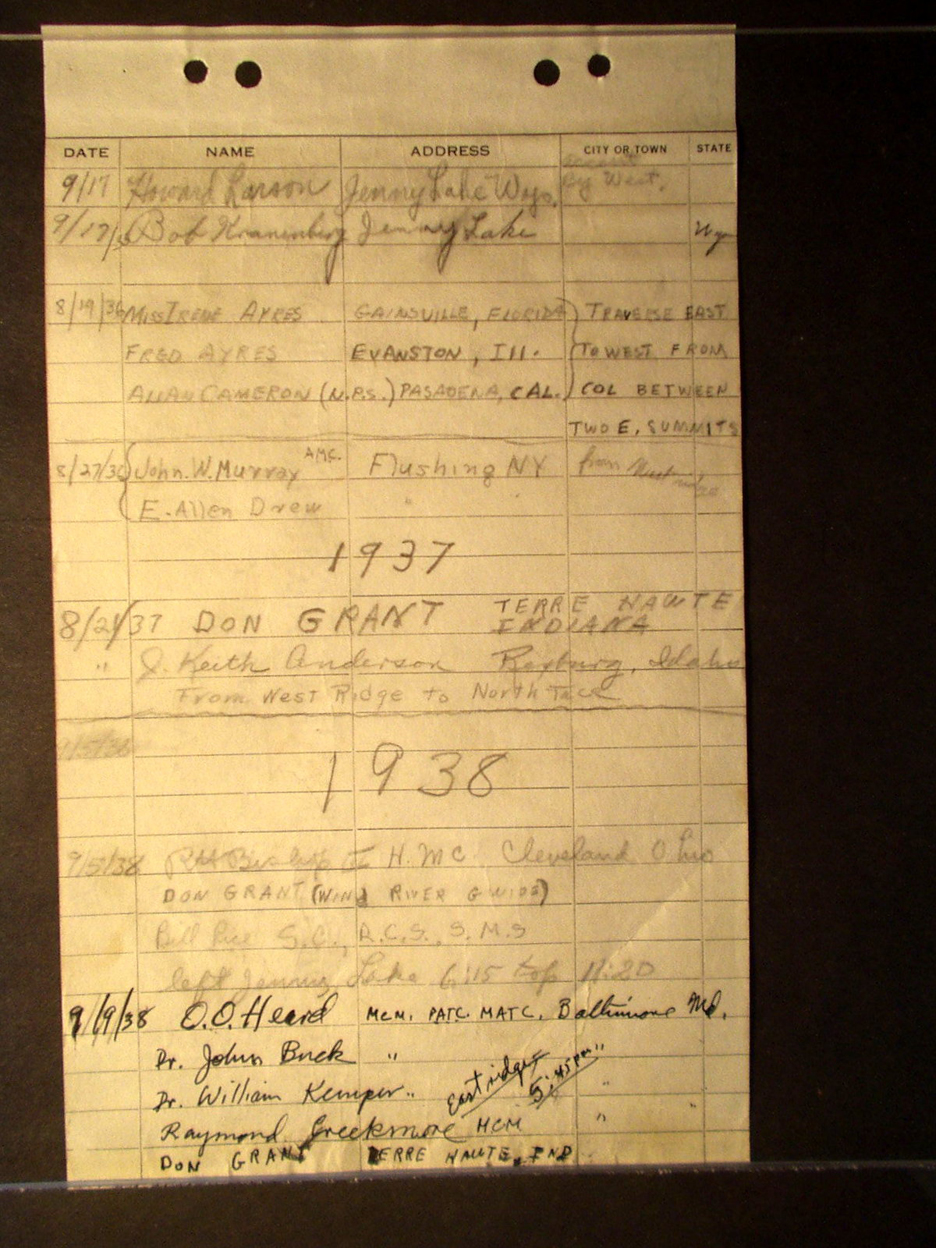 DATE NAME ADDRESS CITY OR TOWN STATE
9/17 Howard Larson Jenny Lake Wyo. By West.
9/17/36 Bob Kranenberg Jenny Lake Wyo
8/19/36 MISS IRENE AYRES GAINSVILLE, FLORIDA TRAVERSE EAST
FRED AYRES EVANSTON, Ill. TO WEST FROM
ALLAN CAMERON (N.P.S.) PASADENA, CAL. COL BETWEEN
TWO E. SUMMITS
8/27/36 John. W. Murray AMC. Flushing NY from West ridge
E. Allen Drew "
1937
8/21/37 DON GRANT TERRE HAUTE
INDIANA
" J. Keith Anderson Rexburg, Idaho
From West Ridge to North Face
9/5/38
1938
9/5/38 H. M C. Cleveland Ohio
DON GRANT (WIND RIVER GUIDE)
Bill S.C., R.C.S., S.M.S
left Jenny Lake 6:15 top 11:20
9/19/38 O.O. Heard MCM. PATC. MATC. Baltimore Md.
Dr. John Buck " "
Dr. William Kemper " East ridge 5:45 pm "
Raymond Creekmore MCM " "
DON GRANT TERRE HAUTE, IND